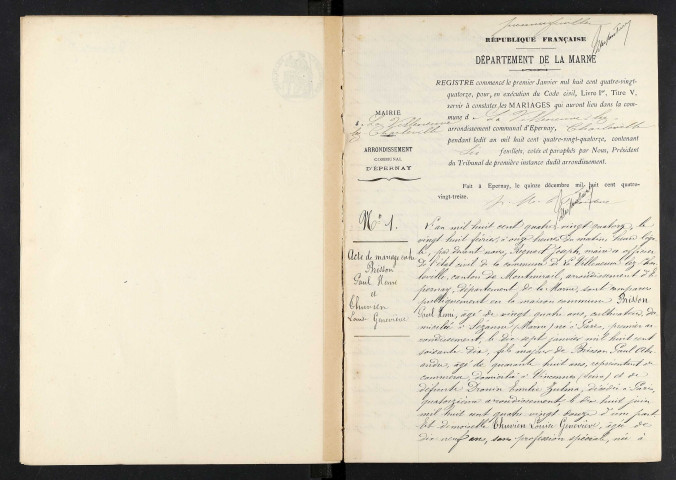 RÉPUBLIQUE FRANÇAISE
DÉPARTEMENT DE LA MARNE
REGISTRE commencé le premier Janvier mil huit cent quatre-vingt-
quatorze, pour, en exécution du Code civil, Livre Ier, Titre V,
servir à constater les MARIAGES qui auront lieu dans la com-
mune de La Villeneuve-lez-
arrondissement communal d'Épernay, Charleville
pendant ledit an mil huit cent quatre-vingt-quatorze, contenant
Six feuillets, cotés et paraphés par Nous, Président
du Tribunal de première instance dudit arrondissement.
Fait à Epernay, le quinze décembre mil huit cent quatre-
vingt-treize.
MAIRIE
de La Villeneuve
lez Charleville
ARRONDISSEMENT
COMMUNAL
D'ÉPERNAY
N° 1.
Acte de mariage entre
Brisson
Paul Henri
et
Thuvien
Louise Geneviève
L'an mil huit cent quatre vingt quatorze, le
vingt huit février, à onze heures du matin, heure légale
par devant nous, Joseph, maire et officier
de l'état civil de la commune de La Villeneuve lez Char
leville, canton de Montmirail, arrondissement d'É
pernay, département de la Marne, sont comparus
publiquement en la maison commune Brisson
Paul Henri, âgé de vingt quatre ans, cultivateur, do
micilié à Sézanne (Marne) né à Paris, premier ar
rondissement, le dix sept janvier mil huit cent
soixante dix, fils majeur de Brisson Paul Ale
xandre, âgé de quarante huit ans, représentant de
commerce, domicilié à Vincennes (Seine) et de
défunte Drouin Emélie Zulma, décédée à Paris,
quatorzième arrondissement, le dix huit juin
mil huit cent quatre vingt douze d'une part
Et demoiselle Thuvien Louise Geneviève, âgée de
dix neuf ans, sans profession spéciale, née à